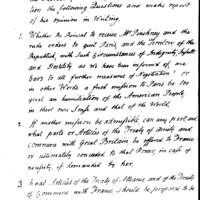 tion the following Questions and make report
of his opinion in Writing.
1. Whether the Refusal to receive Mr Pinckney and the
rude orders to quit Paris and the Territory of the
Republic, with such Circumstances of Indignity, Insult
and Hostility as we have been informed of, are
bars to all further measures of Negotiation? or
in other Words a fresh mission to Paris be too
great an humiliation of the American People
in their own Sight and that of the World.
2. If another mission be admissible, can any part and
what parts or Articles of the Treaty of Amity and
commerce with Great Britain be offered to France
or ultimately conceded to that Power in case of
necessity, if demanded by her.
3. What Articles of the Treaty of Alliance and of the Treaty
of Commerce with France should be proposed to be